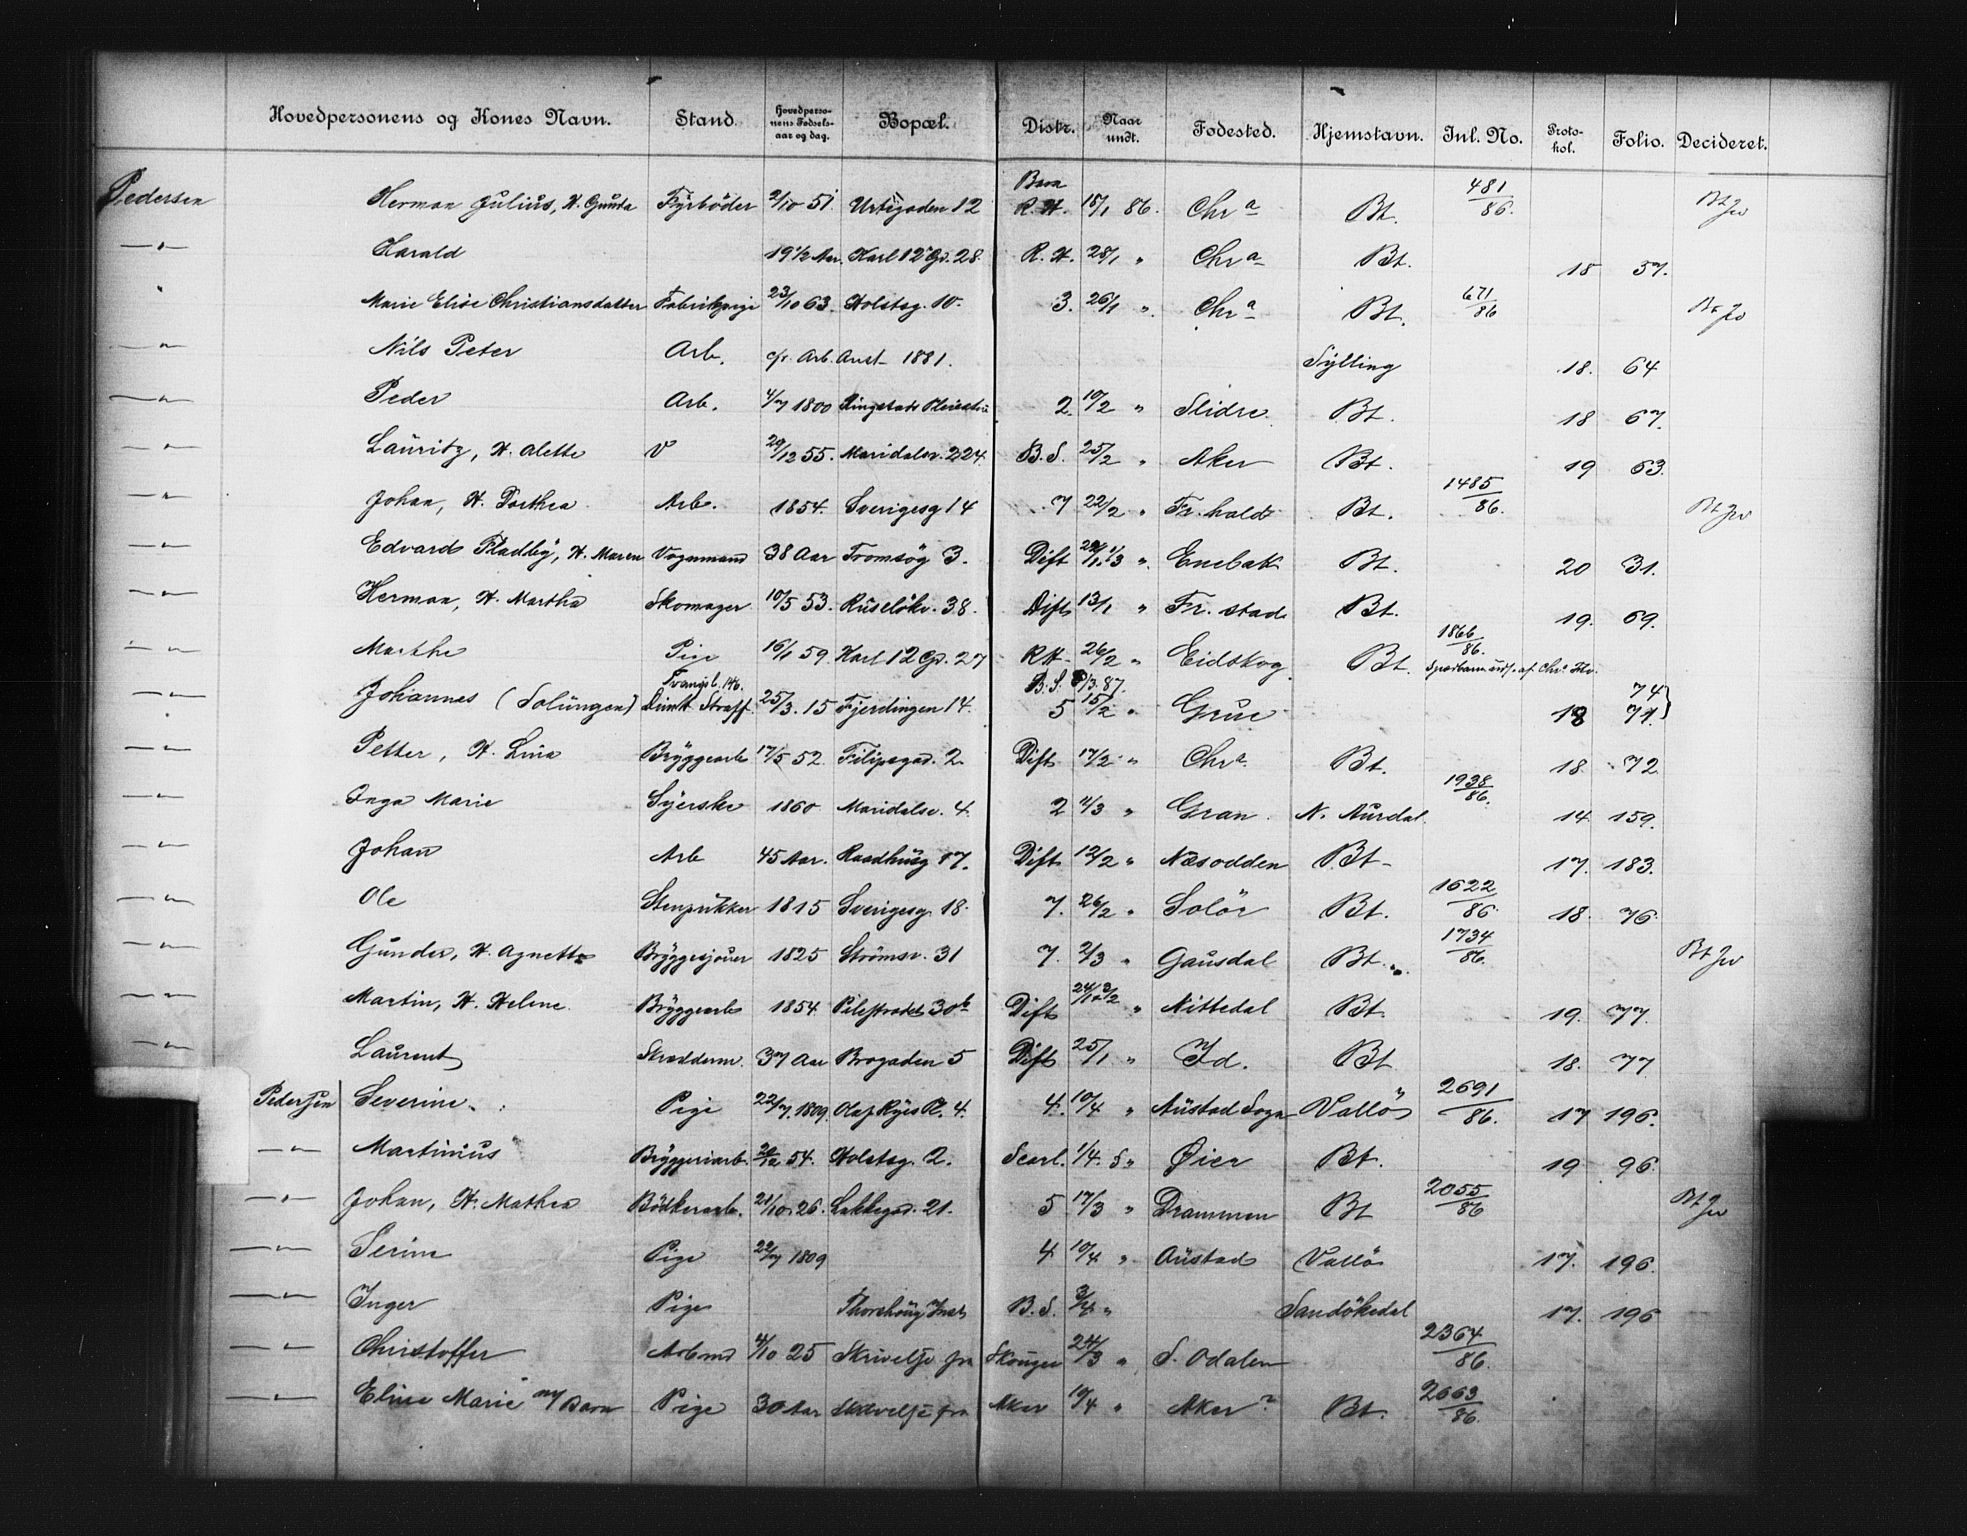 Hovedpersonens og Kones Navn. Stand. Hovedpersonens Fødselsaar og dag. Bopæl. Distr. Naar undt. Fødested. Hjemstavn. Inl. No. Protokol. Folio. Decideret.
Pedersen Herman Julius, H. Gunda Fyrbøder 2/10 51 Urtegaden 12 Barn R. H. 18/1 86. Chr a Bt. 481/86. Bt
—"— Harald 19 1/2 Aar. Karl 12 Gd. 28. R. H. 28/1 " Chr a Bt. 18 57.
" Marie Elise Christiansdatter Fabrikpige 23/10 63. Holstsg. 10. 3. 26/1 ". Chr a Bt. 671/86 Bt
—"— Nils Peter Arb. cfr. Arb. Anst 1881. Sylling 18. 64
—"— Peder Arb. 4/7 1800 2. 10/2 " Slidre Bt. 18 67.
—"— Lauritz, H. Alette V 29/12 55. Maridalsv. 224. B. S. 25/2 " Aker Bt. 19 63.
—"— Johan, H. Dorthea Arb. 1854. Sverigesg 14 7 22/2 " Fr. hald Bt. 1485/86. Bt
—"— Edvard Fladby, H. Maren Vognmand 38 Aar Tromsøg 3. Dift 1/3 ". Enebak Bt. 20 31.
—"— Herman, H. Martha Skomager 10/5 53. Ruseløkv. 38. Dift 13/1 " Fr. stad Bt. 19. 69.
—"— Marthe Pige 16/1 59. Karl 12 Gd. 27 RH. 26/2 " Eidskog Bt. 1866/86. Spædbarn udf. af Chr.
—"— Johannes (Solüngen) Tvangsl. 146. Dimt. Straff. 25/3. 15 Fjerdingen 14. B. S. 8/3. 87. 5 15/2 " Grue 18 74 71.
—"— Petter, H. Lina Bryggearb 17/5 52 Filipsgad. 2. Dift 17/2 " Chr a Bt. 18 72
—"— Inga Marie Syerske 1860 Maridalsv. 4. 2 4/3 " Gran. N. Aurdal. 1938/86. 14 159.
—"— Johan Arb 45 Aar. Raadhusg 17. Dift 12/2 " Næsodden Bt. 17. 183.
—"— Ole Stenpikker 1815 Sverigesg. 18. 7. 26/2 " Solør Bt. 1622/86 18. 76.
—"— Gunder, H. Agnette Bryggesjouer 1825 Strømsv. 31 7. 2/3 " Gausdal Bt. 1734/86. Bt
—"— Martin, H. Helene. Bryggearb 1854 Pilestrædet 30 b Dift " Nittedal Bt. 19. 77.
—"— Laurent Skræderm. 37 Aar Brogaden 5 Dift 25/1 " Id. Bt 18. 77
Pedersen Severine. Pige 22/7. 1809. Olaf Ryes Pl. 4. 4. 10/4 " Austad Sogn Vallø 2691/86. 17 196.
—"— Martinius Bryggeriarb. 20/12 54. Holstsg. 2. Scarl. 1/4. S" Øier Bt. 19 96.
—"— Johan, H. Mathea Bødkerarb. 21/10 26. Lakkegad. 21. 5 17/3 " Drammen Bt 2055/86 Bt
—"— Serine Pige 22/7 1809 4 10/4 " Austad Vallø 17. 196.
—"— Inger Pige Thorshaug Inst B. S. 3/4 " Sandøkedal 17. 196
—"— Christoffer Arbmd 4/10 25 Skrivelse fra Skouger 24/3 " S. Odalen 2364/86.
—"— Eline Marie m/ Barn Pige 30 Aar Skrivelse fra Aker 10/4 " Aker? Bt. 2663/86.